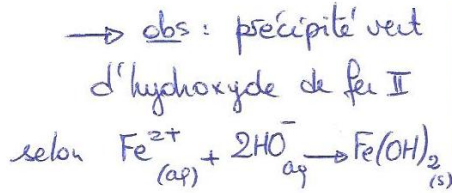 → obs : précipité vert
d'hydroxyde de fer II
selon Fe²⁺(aq) + 2HO⁻aq → Fe(OH)₂(s)